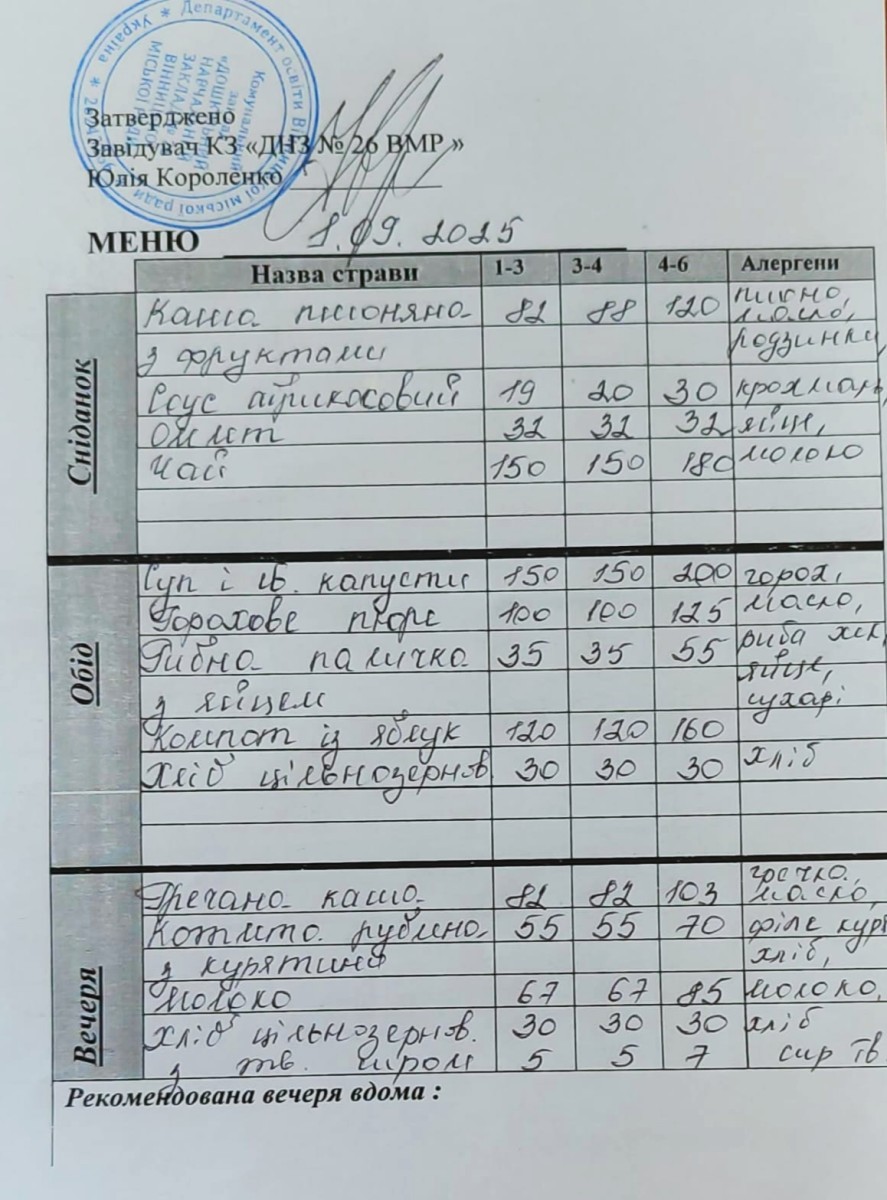 Україна * Департамент освіти Вінницької міської ради
Комунальний
заклад
«ДОШКІЛЬНИЙ
НАВЧАЛЬНИЙ
ЗАКЛАД №
ВІННИЦЬКОЇ
МІСЬКОЇ РАДИ
Затверджено
Завідувач КЗ «ДНЗ № 26 ВМР »
Юлія Короленко
МЕНЮ 1.09.2025
Назва страви 1-3 3-4 4-6 Алергени
Сніданок
Каша пшоняна 82 88 120 пшено, масло,
з фруктами родзинки
Соус абрикосовий 19 20 30 крохмаль,
Омлет 32 32 32 яйце,
Чай 150 150 180 молоко
Обід
Суп і св. капусти 150 150 200 горох,
Горохове пюре 100 100 125 масло,
Рибна паличка 35 35 55 риба хек,
з яйцем яйце, сухарі
Компот із яблук 120 120 160
Хліб цільнозернов 30 30 30 хліб
Вечеря
Гречана каша 82 82 103 гречка, масло,
Котлета рублена 55 55 70 філе кур
з курятини хліб,
Молоко 67 67 85 молоко,
Хліб цільнозернов. 30 30 30 хліб
з тв. сиром 5 5 7 сир тв
Рекомендована вечеря вдома :